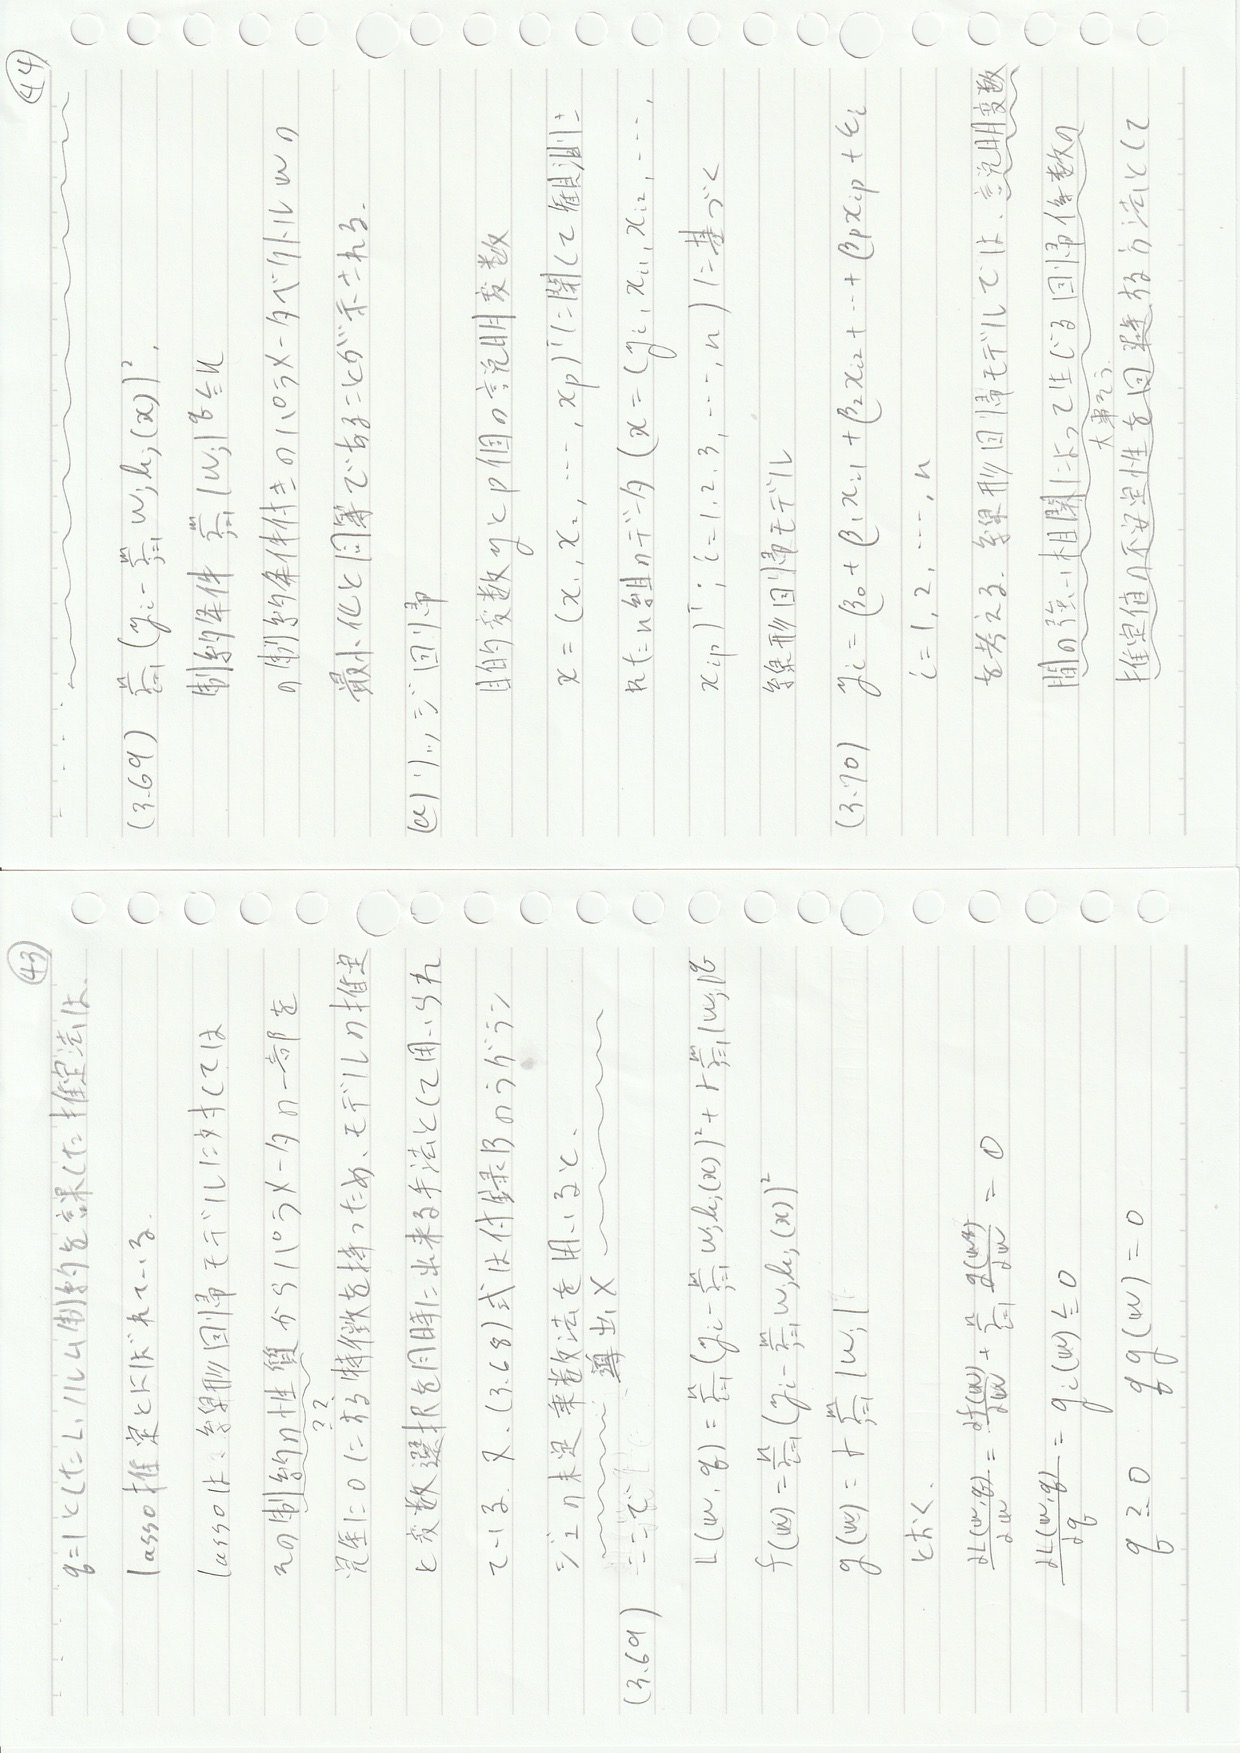 ㊸
q=1としたL₁ノルム制約を課した推定法は、
lasso推定と呼ばれている.
lassoは、線形回帰モデルに対しては
その制約の性質からパラメータの一部を
??
完全に0にする特徴を持つため、モデルの推定
と変数選択を同時に出来る手法として用いられ
ている. 又、(3.68)式は付録Bのラグラン
ジュの未定乗数法を用いると、
導出×
(3.69) ここで
L(w, q) = Σ_{i=1}^{n} (y_i - Σ_{j=1}^{m} w_j h_j(x))² + r Σ_{j=1}^{m} |w_j|^q
f(w) = Σ_{i=1}^{n} (y_i - Σ_{j=1}^{m} w_j h_j(x))²
g(w) = r Σ_{j=1}^{m} |w_j|
とおく、
∂L(w,q)/∂w = ∂f(w)/∂w + Σ_{i=1}^{n} ∂(wq)/∂w = 0
∂L(w,q)/∂q = g_i(w) ≤ 0
q ≥ 0 qg(w) = 0
㊹
(3.69) Σ_{i=1}^{n} (y_i - Σ_{j=1}^{m} w_j h_j(x))²,
制約条件 Σ_{j=1}^{m} |w_j|^q ≤ η
の制約条件付きのパラメータベクトルwの
最小化と同等であることが示される.
(a) リッジ回帰
目的変数yとp個の説明変数
x = (x₁, x₂, ⋯, x_p)ᵀに関して観測さ
れたn組のデータ (x = (y_i, x_{i1}, x_{i2}, ⋯,
x_{ip})ᵀ; i=1,2,3,⋯,n) に基づく
線形回帰モデル
(3.70) y_i = β₀ + β₁x_{i1} + β₂x_{i2} + ⋯ + β_p x_{ip} + ε_i
i = 1, 2, ⋯, n
を考える. 線形回帰モデルでは、説明変数
間の強い相関によって生じる回帰係数の
大事そう.
推定値の不安定性を回避する方法として